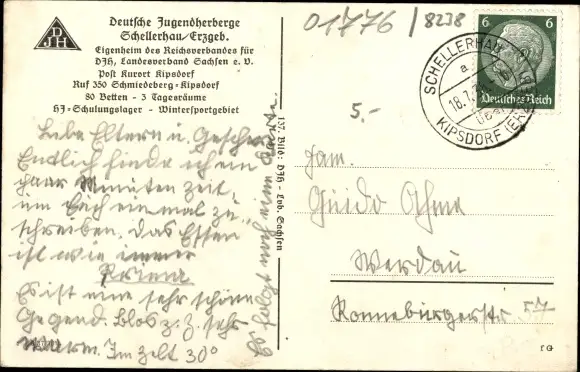 Deutsche Jugendherberge
Schellerhau/Erzgeb.
Eigenheim des Reichsverbandes für
DJH, Landesverband Sachsen e. V.
Post Kurort Kipsdorf
Ruf 350 Schmiedeberg-Kipsdorf
80 Betten - 3 Tagesräume
HJ-Schulungslager - Wintersportgebiet
DJH
01776 / 8238
5.-
6 6
Deutsches Reich
SCHELLERHAU
18.7.
KIPSDORF (ERZGEB)
Liebe Eltern u. Geschw.
Endlich finde ich ein
paar Minuten Zeit,
um Euch einmal zu
schreiben. Das Essen
ist wie immer
Prima
Es ist eine sehr schöne
Gegend. Blos z. Z. sehr
warm. Im Zelt 30°
Es folgt noch eine Karte.
137. Bild: DJH - Lvb. Sachsen
Fam.
Guido Ohme
Werdau
Ronneburgerstr. 57